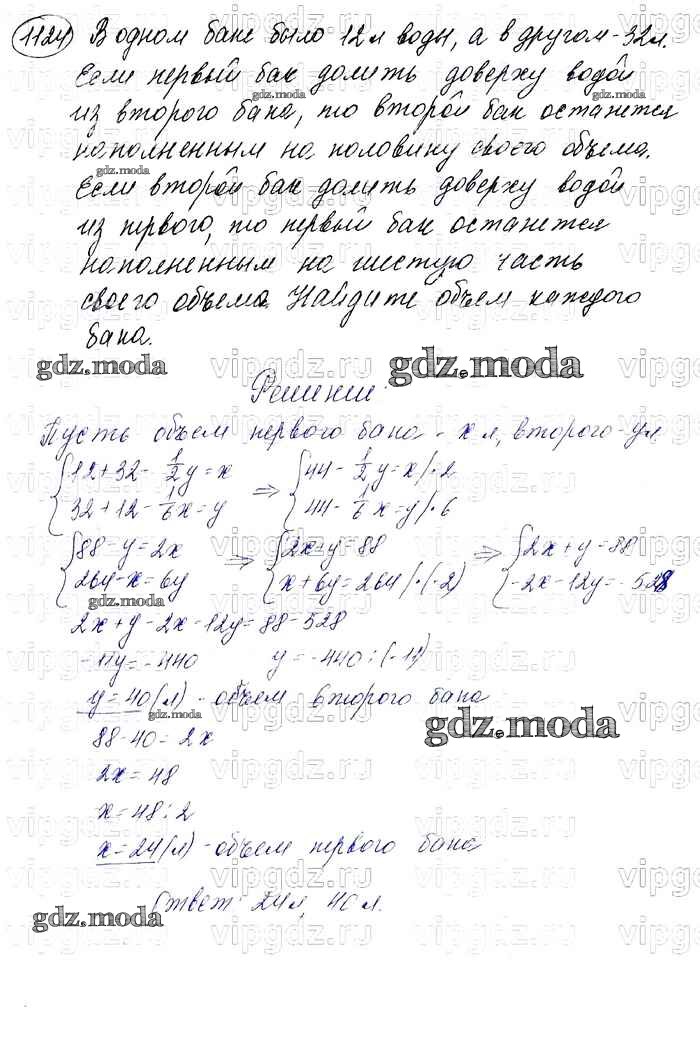 1124 В одном баке было 12 л воды, а в другом - 32 л.
Если первый бак долить доверху водой
из второго бака, то второй бак останется
наполненным на половину своего объема.
Если второй бак долить доверху водой
из первого, то первый бак останется
наполненным на шестую часть
своего объема. Найдите объем каждого
бака.
gdz.moda
Решение:
Пусть объем первого бака - x л, второго - y л
{12+32-1/2y=x => {44-1/2y=x/·2
{32+12-1/6x=y {44-1/6x=y/·6
{88-y=2x => {2x+y=88 => {2x+y=88
{264-x=6y {x+6y=264/·(-2) {-2x-12y=-528
2x+y-2x-12y=88-528
-11y=-440 y=-440:(-11)
y=40(л) - объем второго бака
88-40=2x
2x=48
x=48:2
x=24(л) - объем первого бака
Ответ: 24 л, 40 л.
gdz.moda
vipgdz.ru